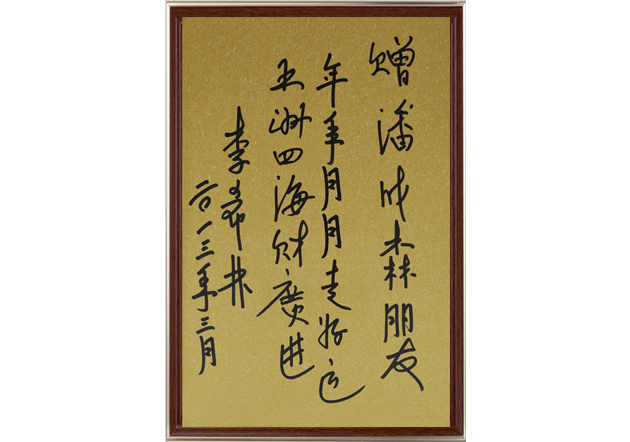 赠潘成森朋友
年年月月走好运
五洲四海财廣进
李希林
二〇一三年三月